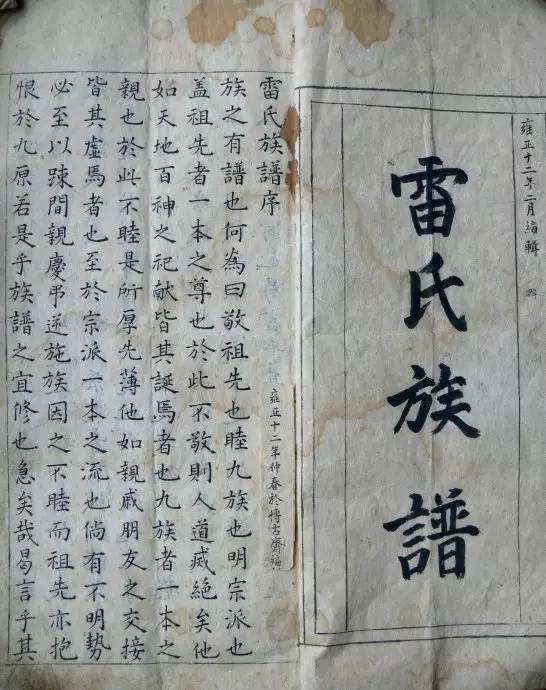 雍正十二年二月編輯
雷氏族譜
雷氏族譜序
雍正十二年仲春於博古齋
族之有譜也何為曰敬祖先也睦九族也明宗派也
盖祖先者一本之尊也於此不敬則人道烕絕矣他
如天地百神之祀献皆其誕焉者也九族者一本之
親也於此不睦是所厚先薄他如親戚朋友之交接
皆其虛焉者也至於宗派一本之流也倘有不明勢
必至以踈間親慶弔遂施族因之不睦而祖先亦抱
恨於九原若是乎族譜之宜修也急矣哉曷言乎其